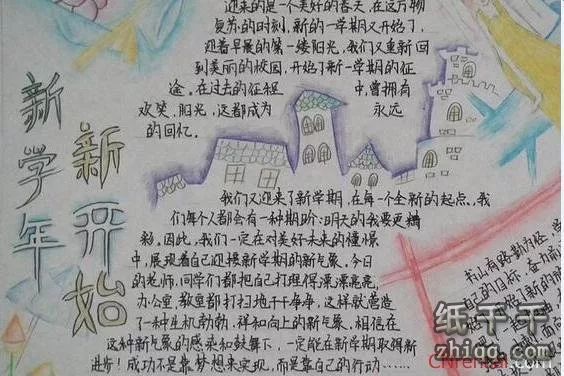 新学年
新开始
迎来的是一个美好的春天，在这万物
复苏的时刻，新的一学期又开始了，
迎着早晨的第一缕阳光，我们又重新回
到美丽的校园，开始了新一学期的征
途。在过去的征程中，曾拥有
欢笑、阳光，这都成为永远
的回忆。
我们又迎来了新学期，在每一个全新的起点，我
们每个人都会有一种期盼：明天的我要更精
彩。因此，我们一定在对美好未来的憧憬
中，展现着自己迎接新学期的新气象。今日
的老师、同学们都把自己打理得漂漂亮亮，
办公室、教室都打扫地干干净净，这样就营造
了一种生机勃勃，祥和向上的新气象，相信在
这种新气象的感染和鼓舞下，一定能在新学期取得新
进步！成功不是靠梦想来实现，而是靠自己的行动……
书山有路勤为径
自己的目标，奋力前
纸千千
zhiqq.com